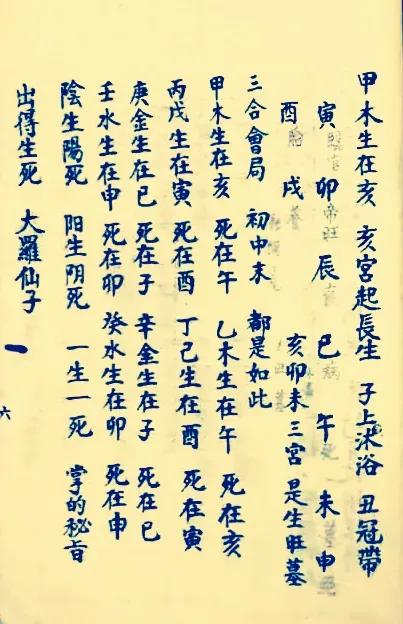 甲木生在亥 亥宮起長生 子上沐浴 丑冠帶
寅臨官 卯帝旺 辰 巳病 午 未墓 申
酉胎 戌養 亥卯未三宮 是生旺墓
三合會局 初中末 都是如此
甲木生在亥 死在午 乙木生在午 死在亥
丙戊生在寅 死在酉 丁己生在酉 死在寅
庚金生在巳 死在子 辛金生在子 死在巳
壬水生在申 死在卯 癸水生在卯 死在申
陰生陽死 阳生阴死 一生一死 掌的秘旨
出得生死 大羅仙子
一
六